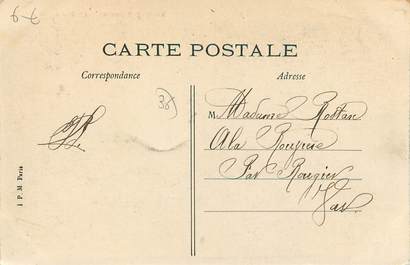 6-7
CARTE POSTALE
Correspondance
Adresse
38
M Madame Rostan
A la
Par Rougiers
Var
I P. M Paris